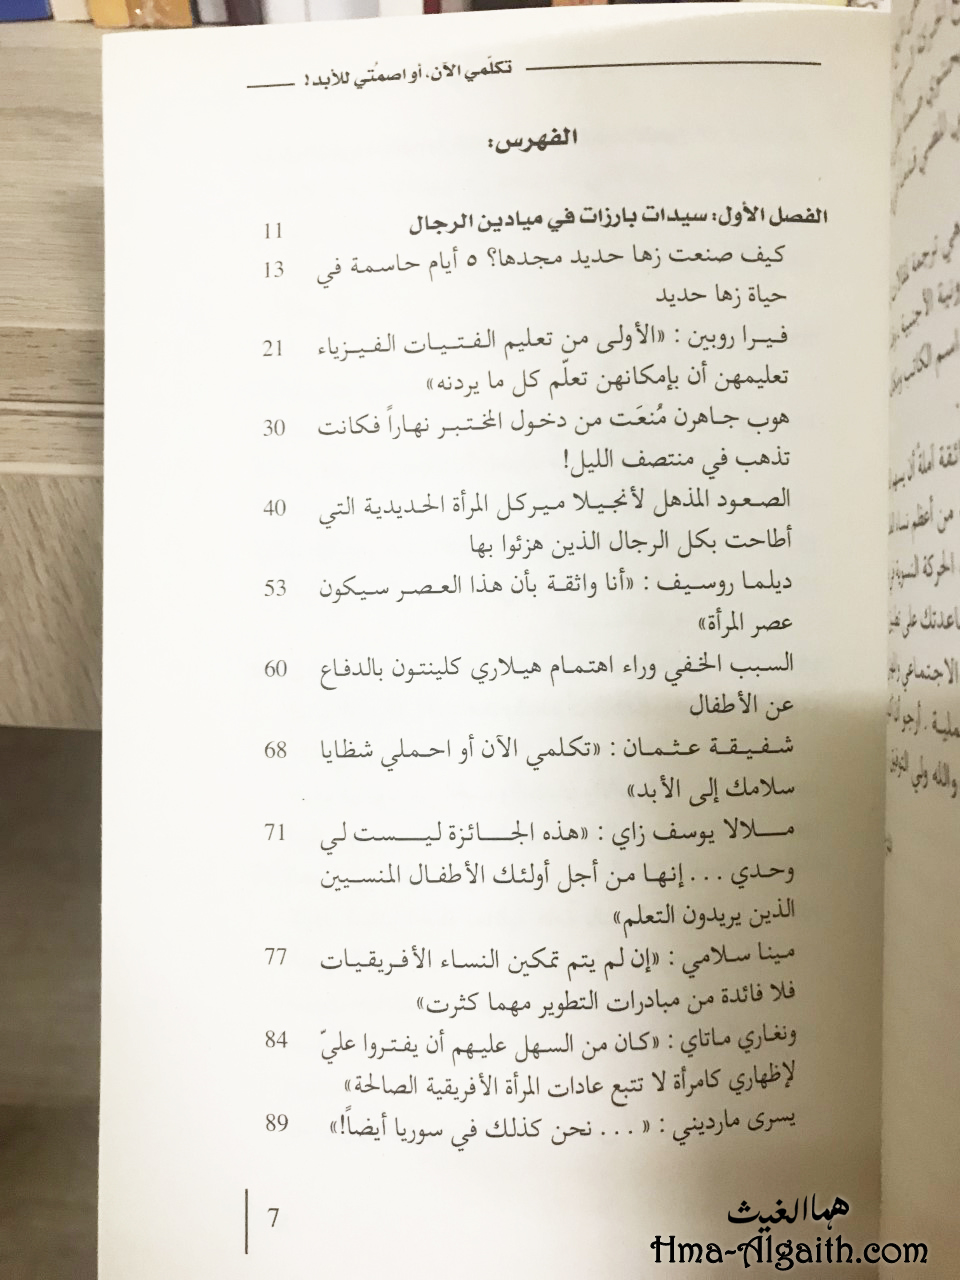 تكلّمي الآن، أو اصمُتي للأبد!
الفهرس:
الفصل الأول: سيدات بارزات في ميادين الرجال 11
كيف صنعت زها حديد مجدها؟ ٥ أيام حاسمة في 13
حياة زها حديد
فيرا روبين : «الأولى من تعليم الفتيات الفيزياء 21
تعليمهن أن بإمكانهن تعلّم كل ما يردنه»
هوب جاهرن مُنعَت من دخول المختبر نهاراً فكانت 30
تذهب في منتصف الليل!
الصعود المذهل لأنجيلا ميركل المرأة الحديدية التي 40
أطاحت بكل الرجال الذين هزئوا بها
ديلما روسيف : «أنا واثقة بأن هذا العصر سيكون 53
عصر المرأة»
السبب الخفي وراء اهتمام هيلاري كلينتون بالدفاع 60
عن الأطفال
شفيقة عثمان : «تكلمي الآن أو احملي شظايا 68
سلامك إلى الأبد»
ملالا يوسف زاي : «هذه الجائزة ليست لي 71
وحدي ... إنها من أجل أولئك الأطفال المنسيين
الذين يريدون التعلم»
مينا سلامي : «إن لم يتم تمكين النساء الأفريقيات 77
فلا فائدة من مبادرات التطوير مهما كثرت»
ونغاري ماتاي : «كان من السهل عليهم أن يفتروا عليّ 84
لإظهاري كامرأة لا تتبع عادات المرأة الأفريقية الصالحة»
يسرى مارديني : « ... نحن كذلك في سوريا أيضاً!» 89
7
هما الغيث
Hma-Algaith.com
هي ترجمة
اسم الكاتب
من أعظم نساء
الحركة النسوية
الاجتماعي
والله ولي التوفيق